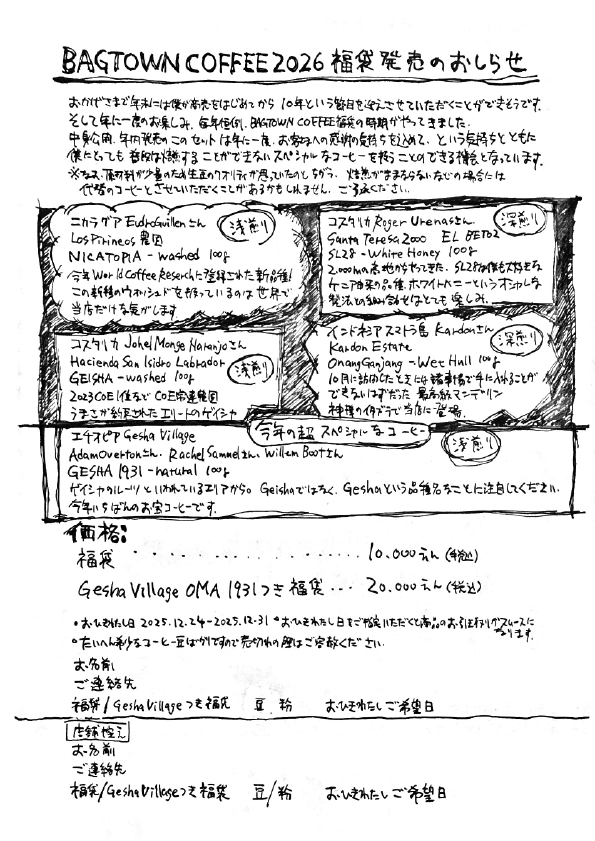 BAGTOWN COFFEE 2026 福袋発売のおしらせ
おかげさまで年末には僕が商売をはじめてから10年という節目を迎えさせていただくことができそうです。
そして年に一度のお楽しみ、毎年恒例、BAGTOWN COFFEE福袋の時期がやってきました。
年内発売のこのセットは年に一度、お客さまへの感謝の気持ちを込めて、という気持ちとともに
僕にとっても普段は焙煎することができないスペシャルなコーヒーを扱うことのできる機会となっています。
※なお、原材料が少量のため生豆のクオリティが思っていたのとちがう、焙煎がままならないなどの場合には
代替のコーヒーとさせていただくことがあるかもしれません。ご了承ください。
ニカラグア Eudro Guillenさん
浅煎り
Los Pirineos 農園
NICATOPIA - washed 100g
今年World Coffee Reserchに登録された新品種!
この新種のウォッシュドを扱っているのは世界で
当店だけな気がします
コスタリカ Roger Urenaさん
深煎り
Santa Teresa 2000 EL BETO2
SL28 - White Honey 100g
2,000m高地からやってきた、SL28 僕も大好きな
ケニア由来の品種。ホワイトハニーというオシャレな
製法との組み合わせはとても楽しみ
コスタリカ Johel Monge Naranjoさん
Hacienda San Isidro Labrador
浅煎り
GEISHA - washed 100g
2023COE1位など COE常連農園
うまさが約束されたエリートのゲイシャ
インドネシアスマトラ島 Kardonさん
深煎り
Kardon Estate
Onang Ganjang - Wet Hull 100g
10月に訪問したときには諸事情で手に入れることが
できないはずだった 最高級マンデリン
神様のイタズラで当店に登場
今年の超スペシャルなコーヒー
エチオピア Gesha Village
浅煎り
Adam Overtonさん、Rachel Samuelさん、Willem Bootさん
GESHA 1931 - natural 100g
ゲイシャのルーツといわれているエリアから。Geishaではなく、Geshaという品種名なことに注目してください。
今年いちばんのお宝コーヒーです。
価格:
福袋 ・・・・・・・・・・・・・・ 10,000えん(税込)
Gesha Village OMA 1931つき福袋・・・20,000えん(税込)
・おひきわたし日 2025.12.24-2025.12.31 ・おひきわたし日をご指定いただくと商品のお引きわたりがスムーズになります。
・たいへん希少なコーヒー豆ばかりですので売切れの際はご容赦ください。
お名前
ご連絡先
福袋/Gesha Villageつき福袋 豆 粉 おひきわたしご希望日
店舗控え
お名前
ご連絡先
福袋/Gesha Villageつき福袋 豆/粉 おひきわたしご希望日